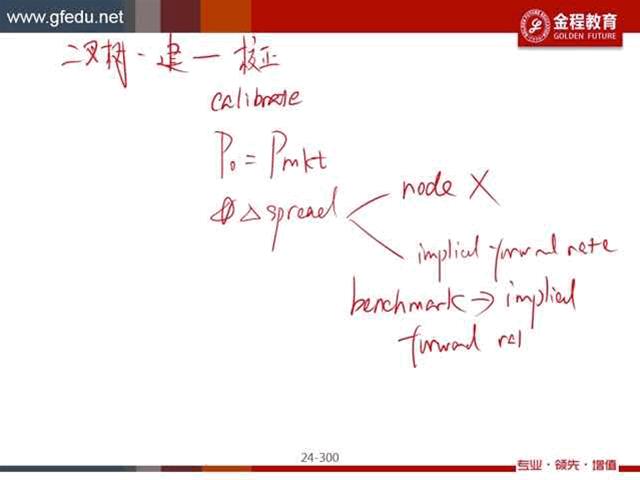 www.gfedu.net
金程教育
GOLDEN FUTURE
二叉树·建一校正
calibrate
P₀ = Pmkt
△ spread
node X
implied forward rate
benchmark → implied
forward rat
24-300
专业·领先·增值